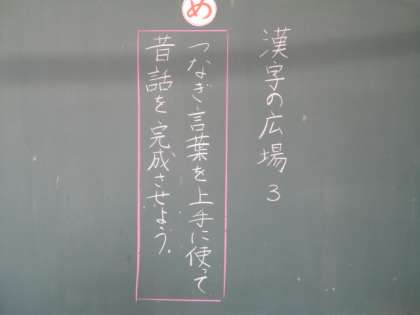 漢字の広場 3
め
つなぎ言葉を上手に使って
昔話を完成させよう。